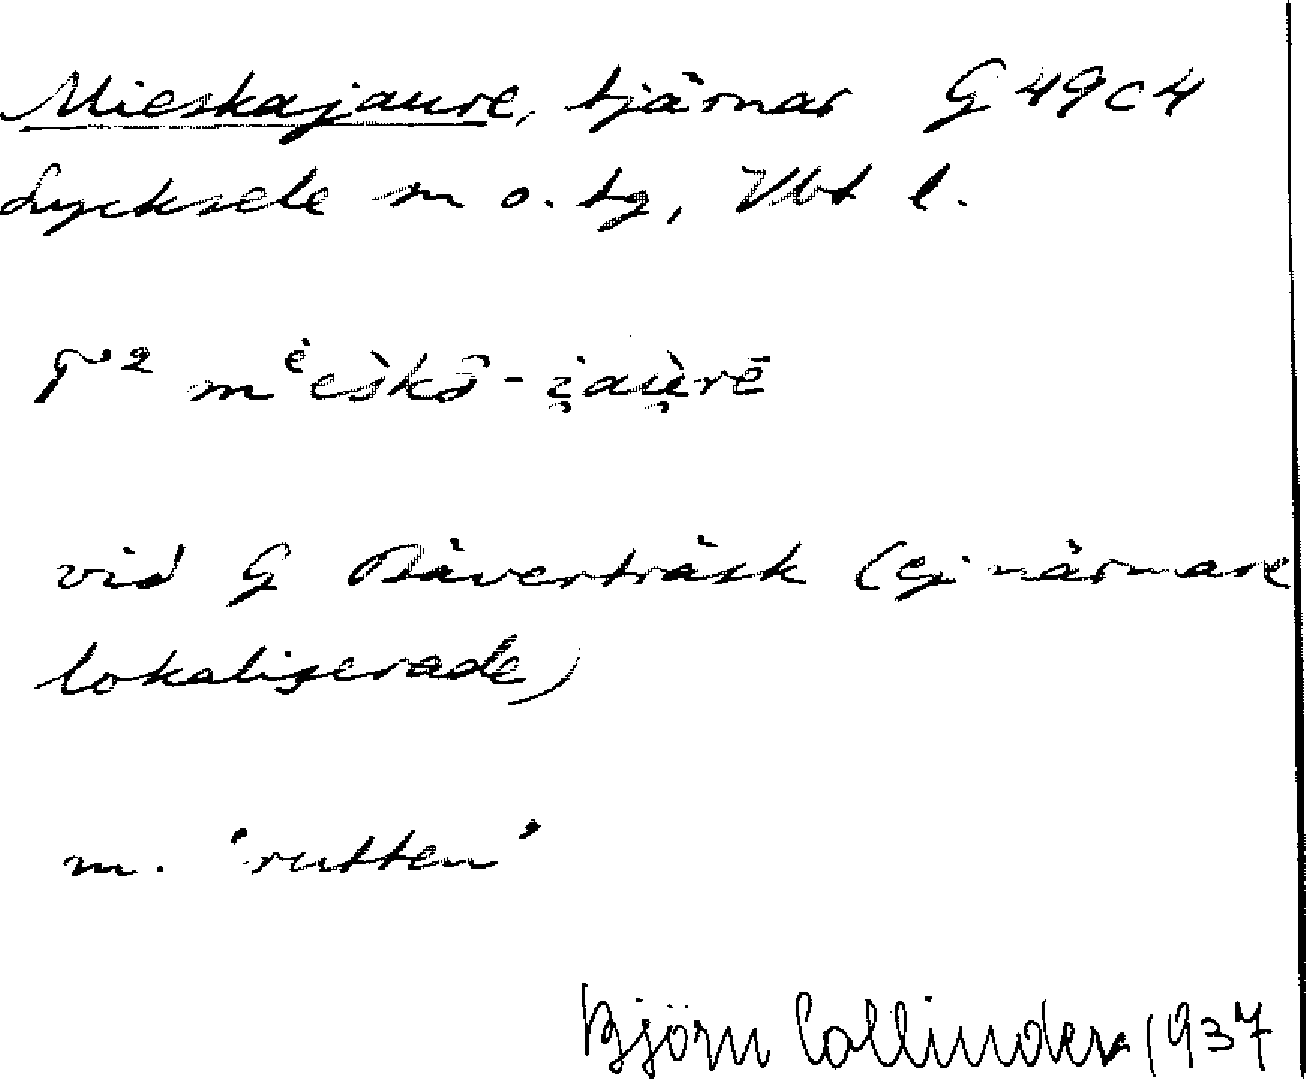 Mieskajaure, tjärnar G 49 c 4
Lycksele sn o. tg, Vbt l.
vid G Bäverträsk (ej närmare
lokaliserade)
m. 'rutten'
Björn Collinder 1937